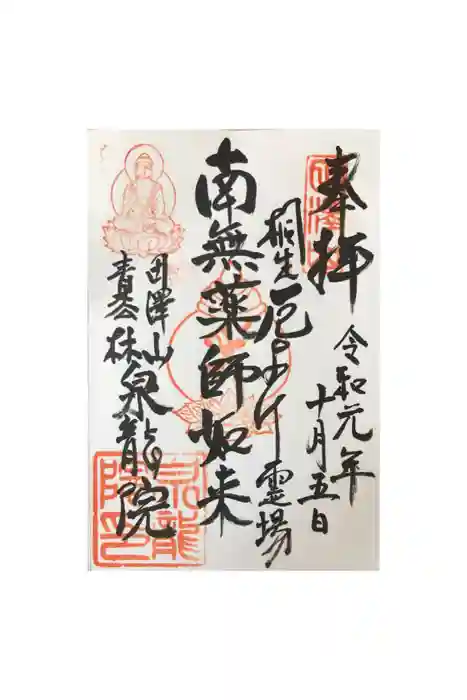 奉拝
令和元年
十月五日
桐生厄よけ霊場
南無薬師如来
田澤山
青蓮林泉龍院
泉龍院印